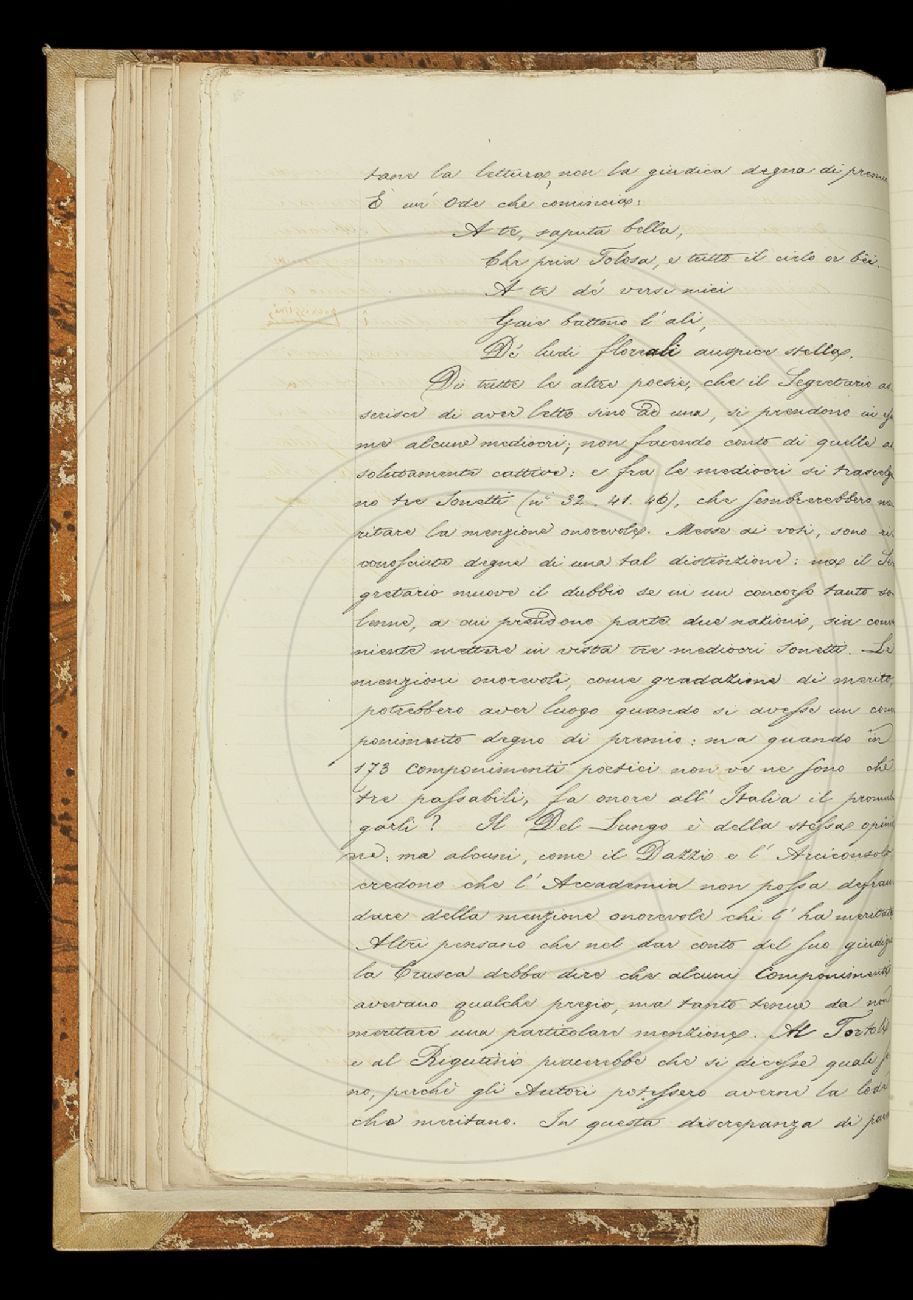 tane la lettura, non la giudica degna di premi
È un' Ode che comincia:
A te, saputa bella,
Che pria Tolosa, e tutto il cielo or bèi.
A te de' versi miei
Gaie battono l' ali,
De' ludi floreali auspice stella.
Di tutte le altre poesie, che il Segretario as
serisce di aver letto sino ad una, si prendono in esa
me alcune mediocri; non facendo conto di quelle as
solutamente cattive: e fra le mediocri si trascelgo
no tre Sonetti (n° 32. 41. 46), che sembrerebbero me
ritare la menzione onorevole. Messe ai voti, sono ri
conosciute degne di una tal distinzione: ma il Se
gretario muove il dubbio se in un concorso tanto so
lenne, a cui prendono parte due nazioni, sia conve
niente mettere in vista tre mediocri Sonetti. Le
menzioni onorevoli, come gradazione di merito,
potrebbero aver luogo quando si avesse un com
ponimento degno di premio: ma quando in
173 componimenti poetici non ve ne sono che
tre passabili, fa onore all' Italia il promul
garli? Il Del Lungo è della stessa opinio
ne; ma alcuni, come il Dazzi e l' Arciconsolo
credono che l' Accademia non possa defrau
dare della menzione onorevole chi l' ha meritata
Altri pensano che nel dar conto del suo giudizio
la Crusca debba dire che alcuni componimenti
avevano qualche pregio, ma tanto tenue da non
meritare una particolare menzione. Al Tortoli
e al Rigutini piacerebbe che si dicesse quali so
no, perchè gli Autori potessero averne la lode
che meritano. In questa discrepanza di pare